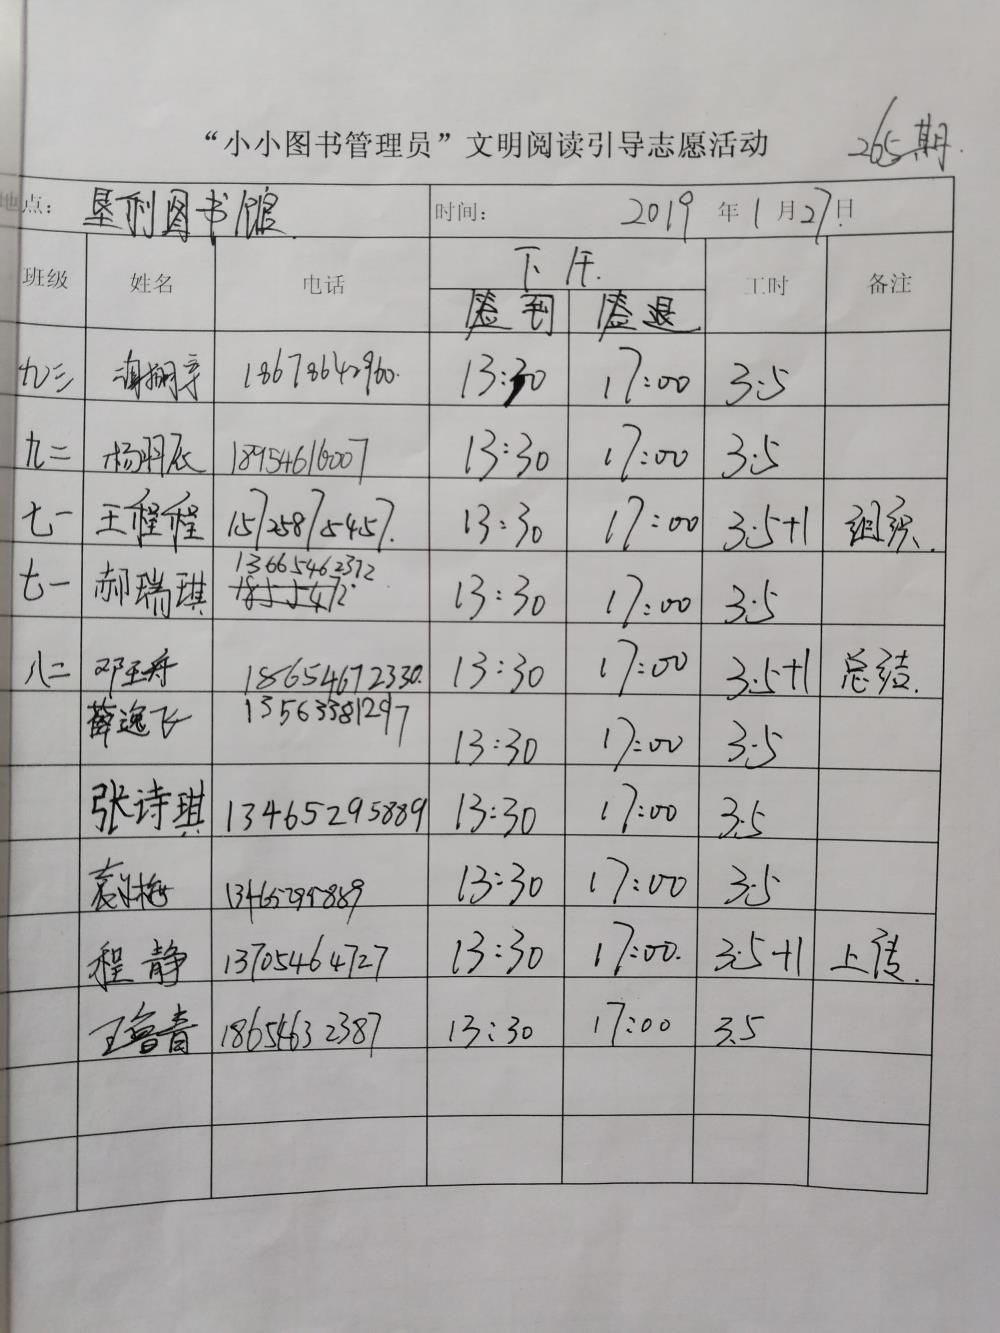 “小小图书管理员”文明阅读引导志愿活动 265期.
地点: 垦利图书馆. 时间: 2019年1月27日
班级 姓名 电话 下午. 工时 备注
签到 签退
九三 18678642960. 13:30 17:00 3.5
九二 杨羽辰 18954616007 13:30 17:00 3.5
七一 王程程 15725875457. 13:30 17:00 3.5+1 组织.
七一 郝瑞琪 13665462372 13:30 17:00 3.5
八二 邓玉舟 18654672330. 13:30 17:00 3.5+1 总结.
薛逸飞 13563381297 13:30 17:00 3.5
张诗琪 13465295889 13:30 17:00 3.5
13465295889 13:30 17:00 3.5
程静 13705464727 13:30 17:00. 3.5+1 上传.
王鲁青 18654632387 13:30 17:00 3.5